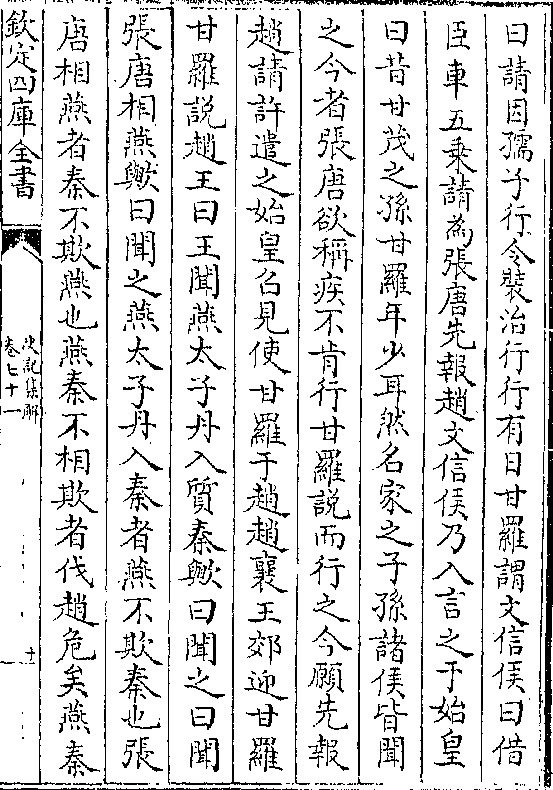 曰請因孺子行令裝治行行有日甘羅謂文信侯曰借
臣車五乗請為張唐先報趙文信侯乃入言之于始皇
曰昔甘茂之孫甘羅年少耳然名家之子孫諸侯皆聞
之今者張唐欲稱疾不肯行甘羅説而行之今願先報
趙請許遣之始皇召見使甘羅于趙趙襄王郊迎甘羅
甘羅説趙王曰王聞燕太子丹入質秦歟曰聞之曰聞
張唐相燕歟曰聞之燕太子丹入秦者燕不欺秦也張
唐相燕者秦不欺燕也燕秦不相欺者伐趙危矣燕秦
欽定四庫全書
史記集解
卷七十一
十一